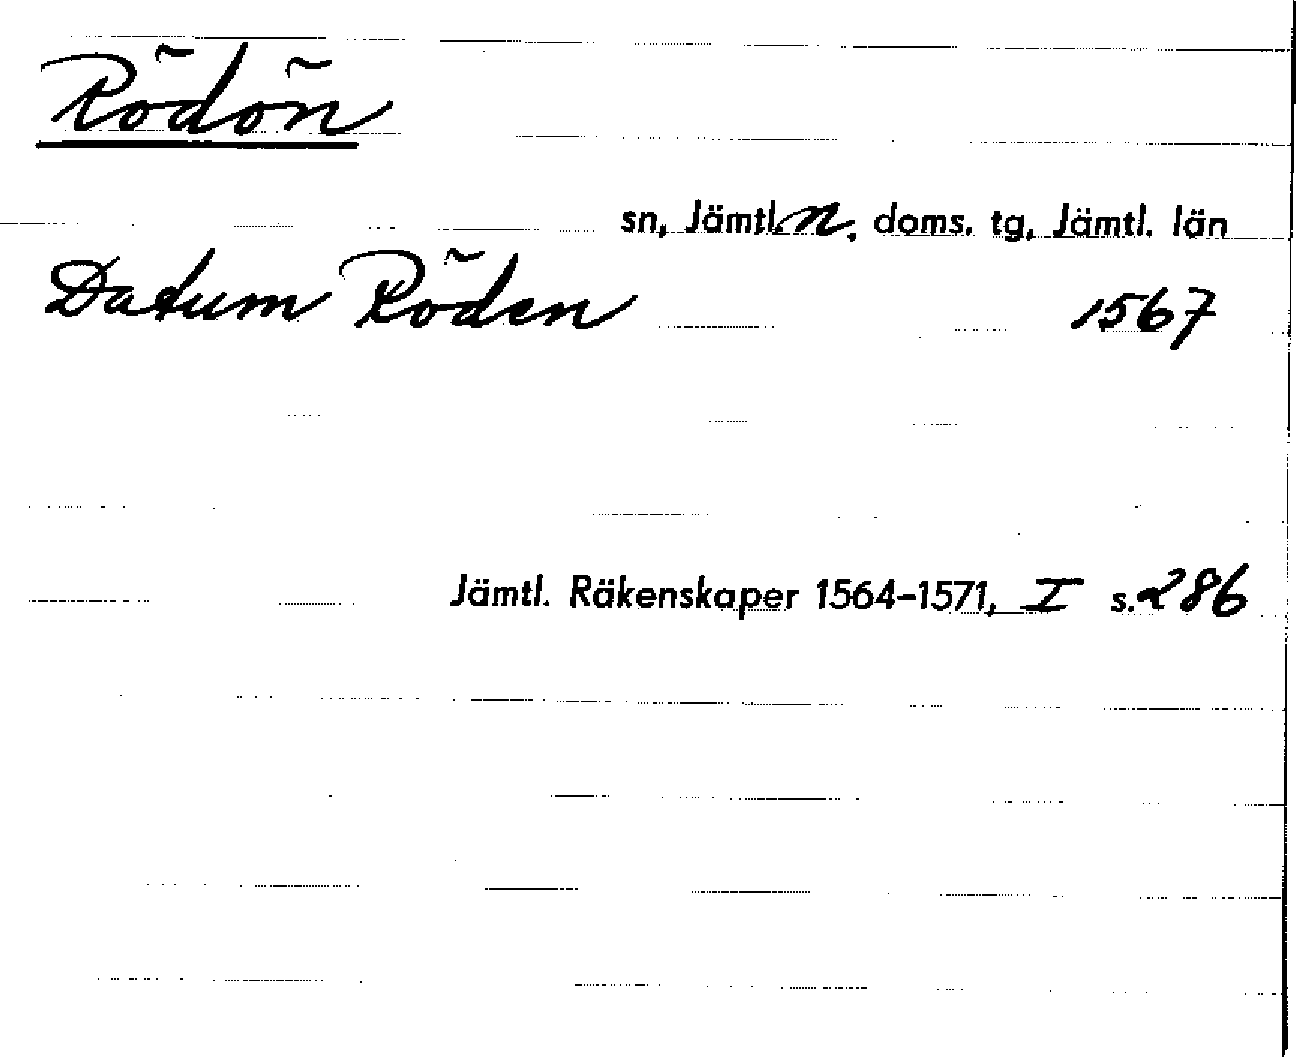 Rödön
sn, Jämtl.n. doms. tg, Jämtl. län
Datum Röden 1567
Jämtl. Räkenskaper 1564-1571, I s. 286